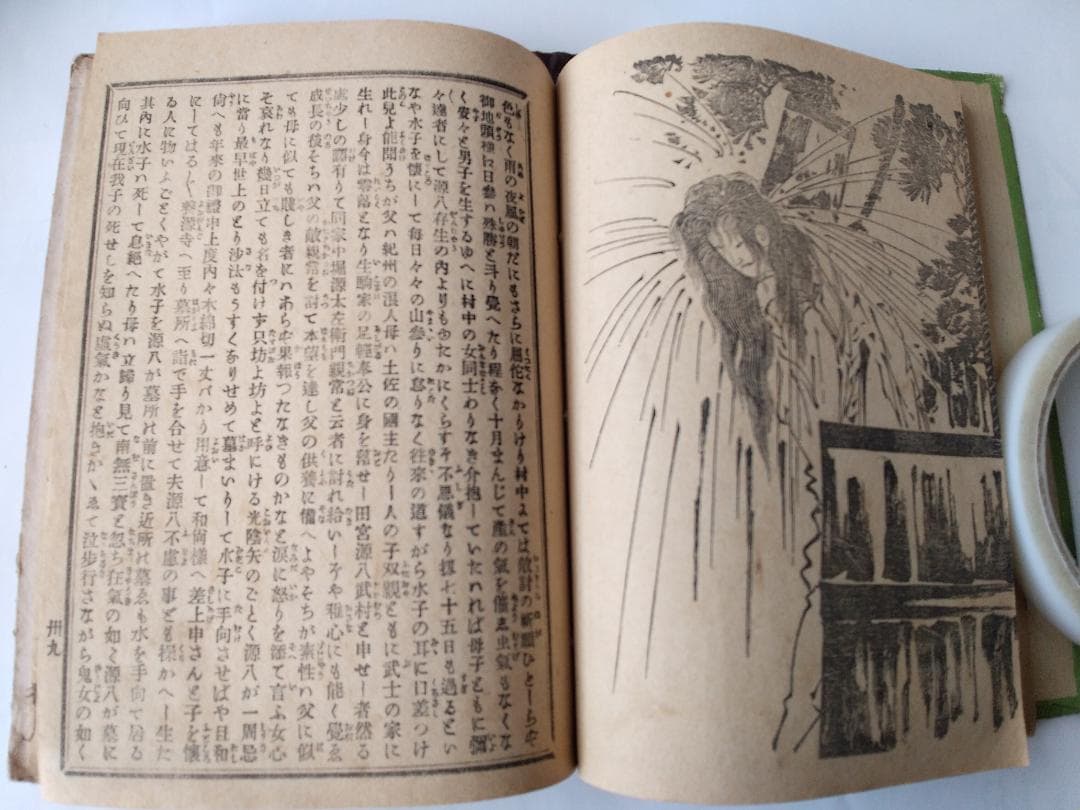 色もなく雨の夜風の朝だにもさらに屈佗なかりけり村中にては敵討の祈願ひとしらや
御地頭様に日参ハ殊勝と斗り覚へたり程なく十月まんじて産の氣を催ふ虫氣もなくな
く安々と男子を生するゆへに村中の女同士わりなき介抱していたハれば母子ともに彌
々達者にして源八存生の内よりもゆたかにくらすぞ不思儀なり扨七十五日も過るとい
なや水子を懐にして毎日々々の山参りに怠りなく往来の道すがら水子の耳に口差つけ
此兒よ能聞うちが父ハ紀州の浪人母ハ土佐の國主たりし人の子双親ともに武士の家に
生れし身今は零落となり生駒家の足軽奉公に身を窶せし田宮源八武村と申せし者然る
處少しの譯有りて同家中堀源太左衛門親常と云者に討れ給いしぞや稚心にも能く覺ゑ
成長の後そちハ父の敵親常を討て本望を達し父の供養に備へよやそちが素性ハ父に似
ても母に似ても賤しき者にハあらず果報つたなきものかなと涙に怒りを添て言ふ女心
そ哀れなり幾日立ても名を付けず只坊よ坊よと呼にける光陰矢のごとく源八が一周忌
に當り最早世上のとり沙汰もうすくなりせめて墓まいりして水子に手向させばや日和
尚へも年来の御禮申上度内々木綿切一丈バかり用意して和尚様へ差上申さんと子を懐
にしてはる〴〵寺へ至り墓所へ詣で手を合せて夫源八不慮の事ども操かへし生た
る人に物いふごとくやがて水子を源八が墓所の前に置き近所の墓ゑも水を手向て居る
其内に水子ハ死して息絶へたり母ハ立歸り見て南無三寳と忽ち狂氣の如く源八が墓に
向ひて現在我子の死せしを知らぬ虚氣かなと抱きかゝゑて泣歩行さながら鬼女の如く
卅九